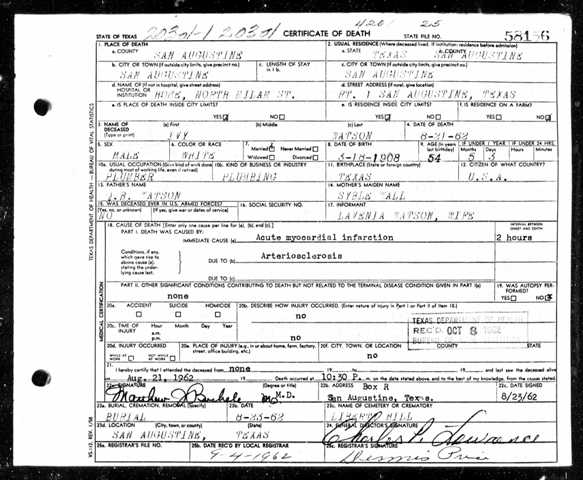 420/ 25
STATE OF TEXAS CERTIFICATE OF DEATH STATE FILE NO. 58186
1. PLACE OF DEATH 2. USUAL RESIDENCE (Where deceased lived. If institution: residence before admission)
a. COUNTY SAN AUGUSTINE a. STATE TEXAS b. COUNTY SAN AUGUSTINE
b. CITY OR TOWN (If outside city limits, give precinct no.) c. LENGTH OF STAY c. CITY OR TOWN (If outside city limits, give precinct no.)
SAN AUGUSTINE SAN AUGUSTINE
d. NAME OF (If not in hospital, give street address) HOSPITAL OR INSTITUTION HOME, NORTH MILAM ST. d. STREET ADDRESS (If rural, give location) RT. 1 SAN AUGUSTINE, TEXAS
e. IS PLACE OF DEATH INSIDE CITY LIMITS? e. IS RESIDENCE INSIDE CITY LIMITS? f. IS RESIDENCE ON A FARM?
YES NO YES NO YES NO
3. NAME OF DECEASED (a) First (b) Middle (c) Last 4. DATE OF DEATH
IVY WATSON 8-21-62
5. SEX 6. COLOR OR RACE 7. Married Never Married 8. DATE OF BIRTH 9. AGE (In years last birthday) IF UNDER 1 YEAR IF UNDER 24 HRS.
MALE WHITE Widowed Divorced 3-18-1908 54 Months 5 Days 3 Hours Minutes
10a. USUAL OCCUPATION (Give kind of work done during most of working life, even if retired) 10b. KIND OF BUSINESS OR INDUSTRY 11. BIRTHPLACE (State or foreign country) 12. CITIZEN OF WHAT COUNTRY?
PLUMBER PLUMBING TEXAS U.S.A.
13. FATHER'S NAME 14. MOTHER'S MAIDEN NAME
WATSON SYBLE
15. WAS DECEASED EVER IN U.S. ARMED FORCES? 16. SOCIAL SECURITY NO. 17. INFORMANT
(Yes, no, or unknown) (If yes, give war or dates of service)
NO LAVENIA WATSON, WIFE
18. CAUSE OF DEATH (Enter only one cause per line for (a), (b), and (c).) INTERVAL BETWEEN ONSET AND DEATH
PART I. DEATH WAS CAUSED BY:
IMMEDIATE CAUSE (a) Acute myocardial infarction 2 hours
Conditions, if any, which gave rise to above cause (a), stating the underlying cause last.
DUE TO (b) Arteriosclerosis
DUE TO (c)
PART II. OTHER SIGNIFICANT CONDITIONS CONTRIBUTING TO DEATH BUT NOT RELATED TO THE TERMINAL DISEASE CONDITION GIVEN IN PART I(a) 19. WAS AUTOPSY PERFORMED?
none YES NO
20a. ACCIDENT SUICIDE HOMICIDE 20b. DESCRIBE HOW INJURY OCCURRED. (Enter nature of injury in Part I or Part II of item 18.)
no
20c. TIME OF INJURY Hour Month Day Year
a.m. p.m. no
REC'D OCT 8 1962
20d. INJURY OCCURRED 20e. PLACE OF INJURY (e.g., in or about home, farm, factory, street, office building, etc.) 20f. CITY, TOWN, OR LOCATION COUNTY STATE
WHILE AT WORK NOT WHILE AT WORK no
21. I hereby certify that I attended the deceased from none
Aug. 21, 1962 Death occurred at 10:30 P. m. on the date stated above, and to the best of my knowledge, from the causes stated.
22a. SIGNATURE (Degree or title) M.D. 22b. ADDRESS Box R San Augustine, Texas. 22c. DATE SIGNED 8/23/62
23a. BURIAL, CREMATION, REMOVAL (Specify) 23b. DATE 23c. NAME OF CEMETERY OR CREMATORY
BURIAL 8-23-62 LIBERTY HILL
23d. LOCATION (City, town, or county) (State) 24. FUNERAL DIRECTOR'S SIGNATURE
SAN AUGUSTINE, TEXAS
25a. REGISTRAR'S FILE NO. 25b. DATE REC'D BY LOCAL REGISTRAR 25c. REGISTRAR'S SIGNATURE
9-4-1962
TEXAS DEPARTMENT OF HEALTH — BUREAU OF VITAL STATISTICS
MEDICAL CERTIFICATION